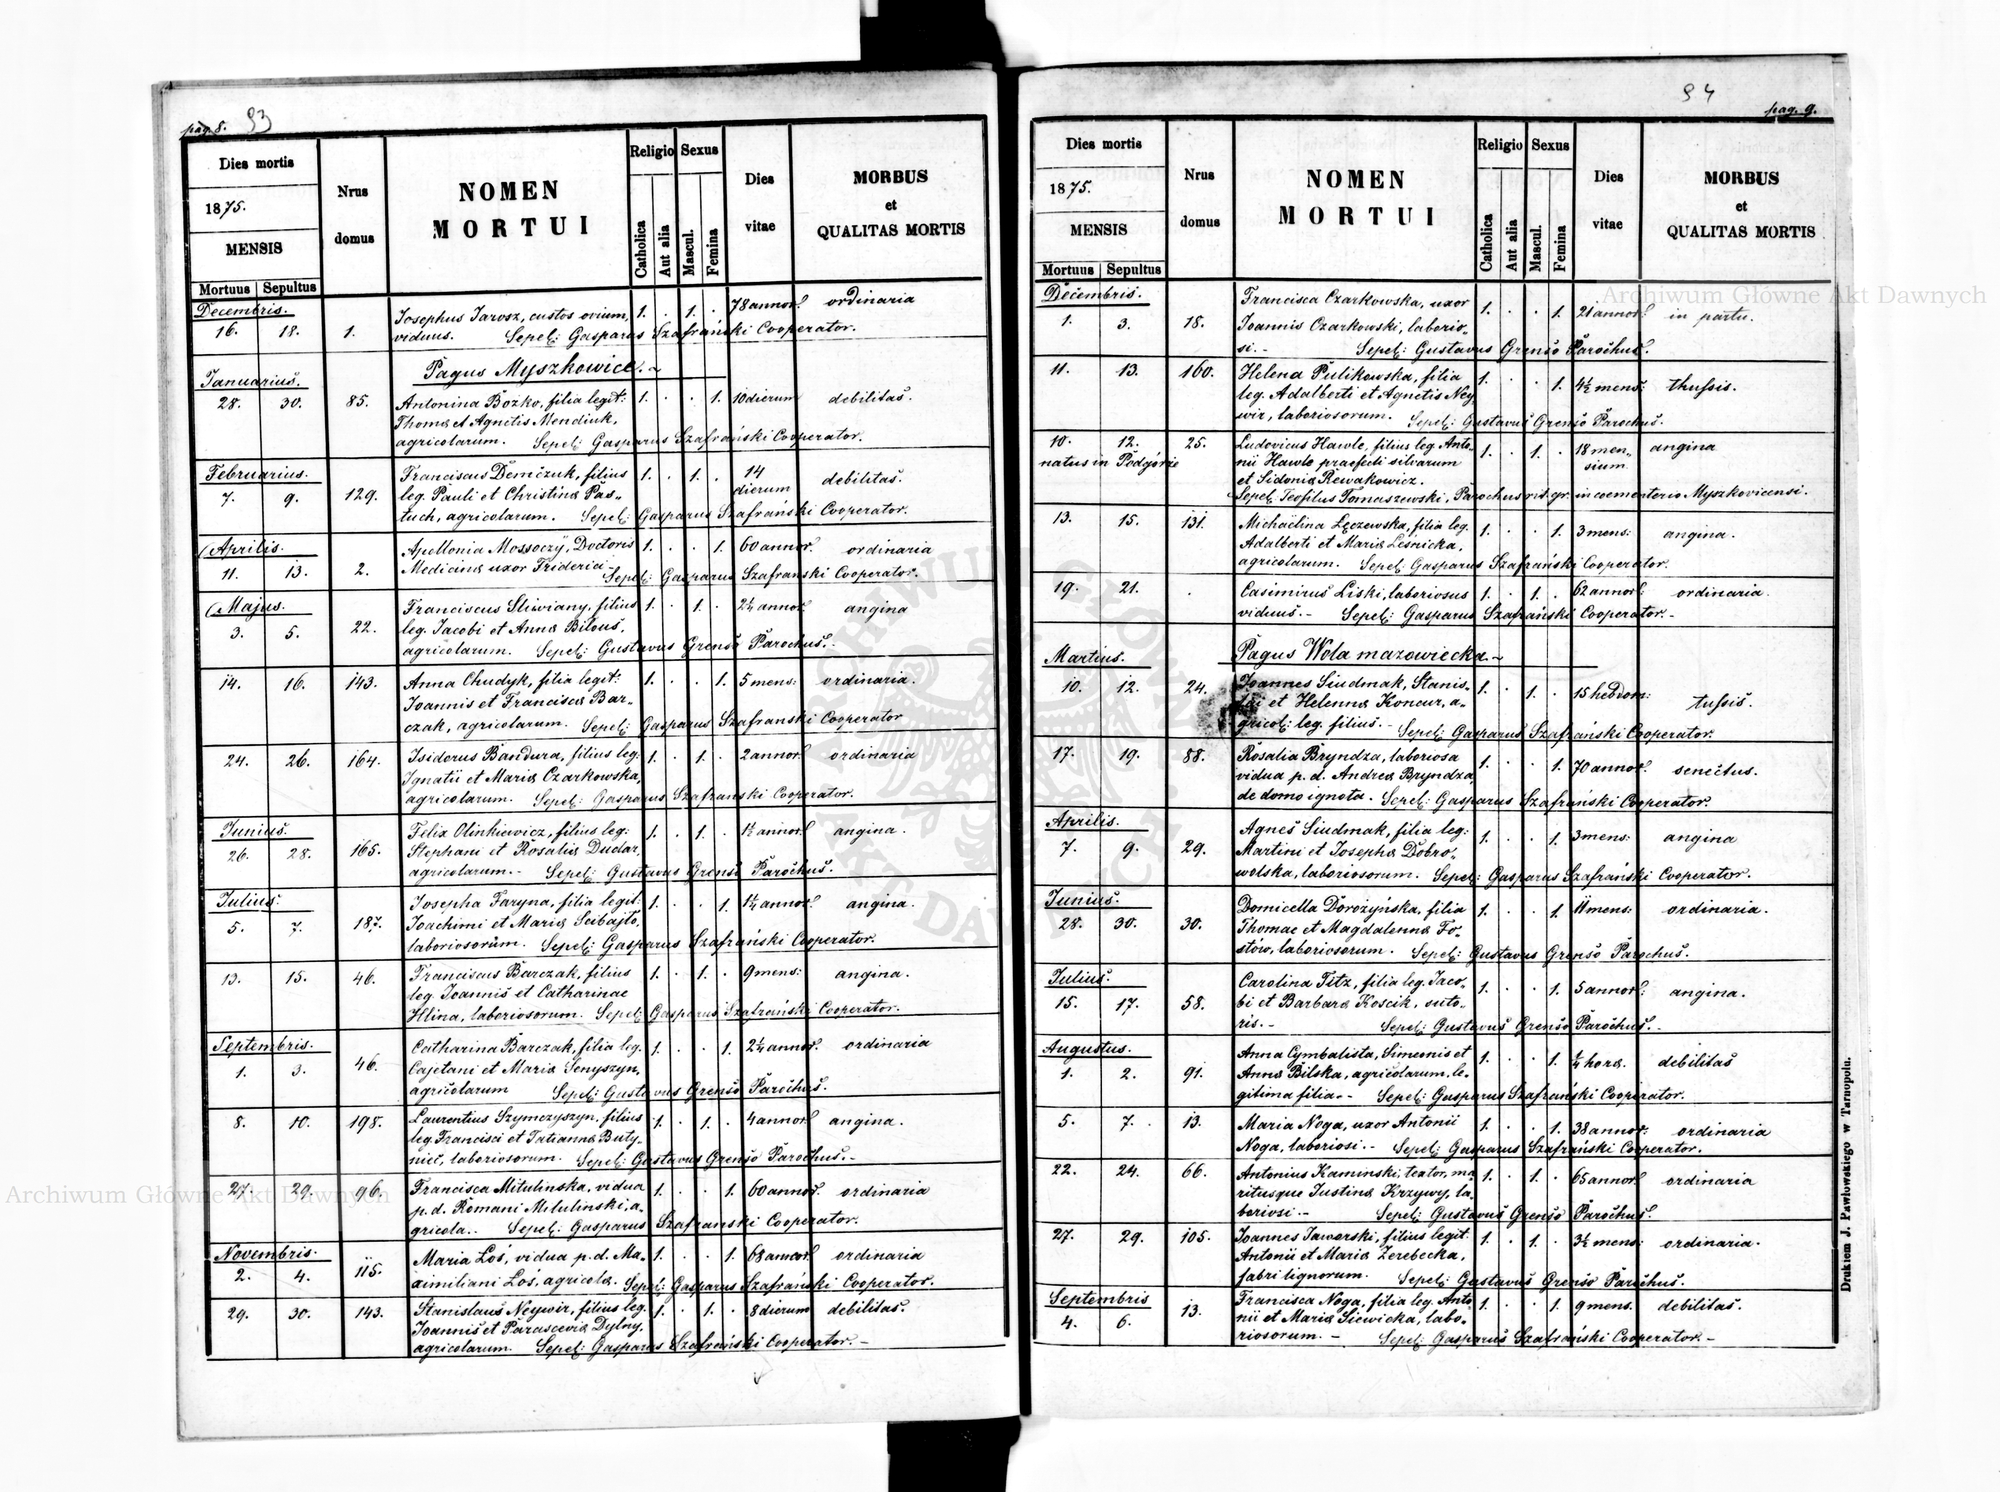 pag. 8. 93
Dies mortis
1875.
MENSIS
Mortuus Sepultus
Nrus domus
NOMEN
MORTUI
Religio Sexus
Catholica Aut alia Mascul. Femina
Dies vitae
MORBUS
et
QUALITAS MORTIS
Decembris.
16. 18. 1. Josephus Jarosz, custos ovium, 1. . 1. . 78 annor. ordinaria
viduus. Sepel: Gasparus Szafrański Cooperator.
Pagus Myszkowice. ~
Januarius.
28. 30. 85. Antonina Bożko, filia legit: 1. . . 1. 10 dierum debilitas.
Thoma et Agnetis Mendiuk,
agricolarum. Sepel: Gasparus Szafrański Cooperator.
Februarius.
7. 9. 129. Franciscus Demczuk, filius 1. . 1. . 14 dierum debilitas.
leg. Pauli et Christina Pas-
tuch, agricolarum. Sepel: Gasparus Szafrański Cooperator.
Aprilis.
11. 13. 2. Apollonia Mossoczÿ, Doctoris 1. . . 1. 60 annor. ordinaria
Medicina uxor Friderici.
Sepel: Gasparus Szafranski Cooperator.
Majus.
3. 5. 22. Franciscus Sliwiany, filius 1. . 1. . 2½ annor. angina
leg. Jacobi et Anna Bilous,
agricolarum. Sepel: Gustavus Grenso Parochus.
14. 16. 143. Anna Chudyk, filia legit: 1. . . 1. 5 mens: ordinaria.
Joannis et Francisca Bar-
czak, agricolarum. Sepel: Gasparus Szafranski Cooperator
24. 26. 164. Isidorus Bandura, filius leg. 1. . 1. . 2 annor. ordinaria
Ignatii et Maria Czarkowska,
agricolarum. Sepel: Gasparus Szafranski Cooperator.
Junius.
26. 28. 165. Felix Olinkiewicz, filius leg: 1. . 1. . 1½ annor. angina.
Stephani et Rosalia Dudar,
agricolarum.- Sepel: Gustavus Grenso Parochus.
Julius:
5. 7. 187. Josepha Faryna, filia legit: 1. . . 1. 1¼ annor. angina.
Joachimi et Maria Scibajło,
laboriosorum. Sepel: Gasparus Szafrański Cooperator.
13. 15. 46. Franciscus Barczak, filius 1. . 1. . 9 mens: angina.
leg. Joannis et Catharinae
Hlina, laboriosorum. Sepel: Gasparus Szafrański Cooperator.
Septembris.
1. 3. 46. Catharina Barczak, filia leg. 1. . . 1. 2¼ annor. ordinaria
Cajetani et Maria Senyszyn,
agricolarum Sepel: Gustavus Grenso Parochus.
8. 10. 198. Laurentius Szymczyszyn, filius 1. . 1. . 4 annor. angina.
leg. Francisci et Tatianna Buty-
niec, laboriosorum. Sepel: Gustavus Grenso Parochus.-
27. 29. 96. Francisca Mitulinska, vidua 1. . . 1. 60 annor. ordinaria
p. d. Romani Mitulinski, a-
gricola.. Sepel: Gasparus Szafranski Cooperator.
Novembris.
2. 4. 115. Maria Łoś, vidua p. d. Ma- 1. . . 1. 68 annor. ordinaria
ximiliani Łos, agricola. Sepel: Gasparus Szafrański Cooperator.
29. 30. 143. Stanislaus Neywir, filius leg. 1. . 1. . 8 dierum debilitas.
Joannis et Parascevia Dylny,
agricolarum. Sepel: Gasparus Szafrański Cooperator.-
94 pag. 9.
Dies mortis
1875.
MENSIS
Mortuus Sepultus
Nrus domus
NOMEN
MORTUI
Religio Sexus
Catholica Aut alia Mascul. Femina
Dies vitae
MORBUS
et
QUALITAS MORTIS
Decembris.
1. 3. 18. Francisca Czarkowska, uxor 1. . . 1. 21 annor. in partu.
Joannis Czarkowski, laborio-
si.- Sepel: Gustavus Grenso Parochus.
11. 13. 160. Helena Pulikowska, filia 1. . . 1. 4½ mens: thussis.
leg. Adalberti et Agnetis Ney-
wir, laboriosorum. Sepel: Gustavus Grenso Parochus.
10. 12. 25. Ludovicus Hawle, filius leg. Anto- 1. . 1. . 18 men- angina
natus in Podgórze nii Hawle praefecti silvarum sium
et Sidonia Rewakowicz.
Sepel. Teofilus Tomaszewski, Parochus rit. gr. in coementerio Myszkovicensi.
13. 15. 131. Michaëlina Łęczewska, filia leg. 1. . . 1. 3 mens: angina.
Adalberti et Maria Leśnicka,
agricolarum. Sepel: Gasparus Szafrański Cooperator.
19. 21. . Casimirus Liski, laboriosus 1. . 1. . 62 annor. ordinaria
viduus.- Sepel: Gasparus Szafrański Cooperator.-
Pagus Wola mazowiecka.~
Martius.
10. 12. 24. Joannes Siudmak, Stanis- 1. . 1. . 15 hebdom: tussis.
lai et Helenna Koncur, a-
gricol: leg. filius.- Sepel: Gasparus Szafrański Cooperator.
17. 19. 88. Rosalia Bryndza, laboriosa 1. . . 1. 70 annor. senectus.
vidua p. d. Andrea Bryndza,
de domo ignota. Sepel: Gasparus Szafrański Cooperator.
Aprilis.
7. 9. 29. Agnes Siudmak, filia leg: 1. . . 1. 3 mens: angina
Martini et Josepha Dobro-
wolska, laboriosorum. Sepel: Gasparus Szafrański Cooperator.
Junius.
28. 30. 30. Domicella Dorożyńska, filia 1. . . 1. 11 mens: ordinaria.
Thomae et Magdalenna Fo-
stów, laboriosorum. Sepel: Gustavus Grenso Parochus.
Julius.
15. 17. 58. Carolina Titz, filia leg. Jaco- 1. . . 1. 5 annor. angina.
bi et Barbara Koscik, suto-
ris.- Sepel: Gustavus Grenso Parochus.-
Augustus.
1. 2. 91. Anna Cymbalista, Simeonis et 1. . . 1. ¼ hora. debilitas
Anna Bilska, agricolarum, le-
gitima filia.- Sepel: Gasparus Szafrański Cooperator.
5. 7. 13. Maria Noga, uxor Antonii 1. . . 1. 38 annor: ordinaria
Noga, laboriosi.- Sepel: Gasparus Szafrański Cooperator.
22. 24. 66. Antonius Kaminski, textor, ma- 1. . 1. . 65 annor. ordinaria
ritusque Justina Krzywy, la-
boriosi.- Sepel: Gustavus Grenso Parochus.
27. 29. 105. Joannes Jaworski, filius legit. 1. . 1. . 3½ mens: ordinaria.
Antonii et Maria Zerebecka,
fabri lignorum. Sepel: Gustavus Grenso Parochus.
Septembris
4. 6. 13. Francisca Noga, filia leg. Anto- 1. . . 1. 9 mens. debilitas.
nii et Maria Siewicka, labo-
riosorum.- Sepel: Gasparus Szafrański Cooperator.-
Drukiem J. Pawłowskiego w Tarnopolu.
Archiwum Główne Akt Dawnych
Archiwum Główne Akt Dawnych
ARCHIWUM GŁÓWNE AKT DAWNYCH